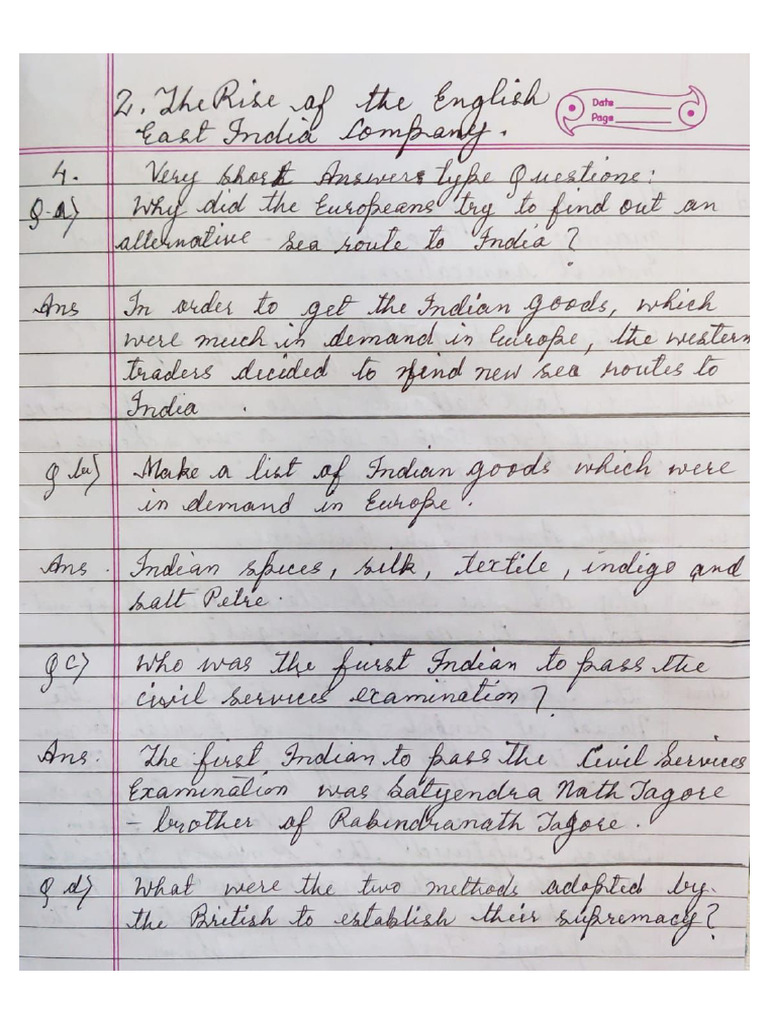 2. The Rise of the English
East India Company.
Date
Page
4. Very short Answers type Questions:
Q.a) Why did the Europeans try to find out an
alternative sea route to India?
Ans In order to get the Indian goods, which
were much in demand in Europe, the western
traders decided to find new sea routes to
India.
Q b) Make a list of Indian goods which were
in demand in Europe.
Ans. Indian spices, silk, textile, indigo and
salt Petre.
Q c) Who was the furst Indian to pass the
civil services examination?
Ans. The first Indian to pass the Civil Services
Examination was Satyendra Nath Tagore
- brother of Rabindranath Tagore.
Q d) What were the two methods adopted by
the British to establish their supremacy?